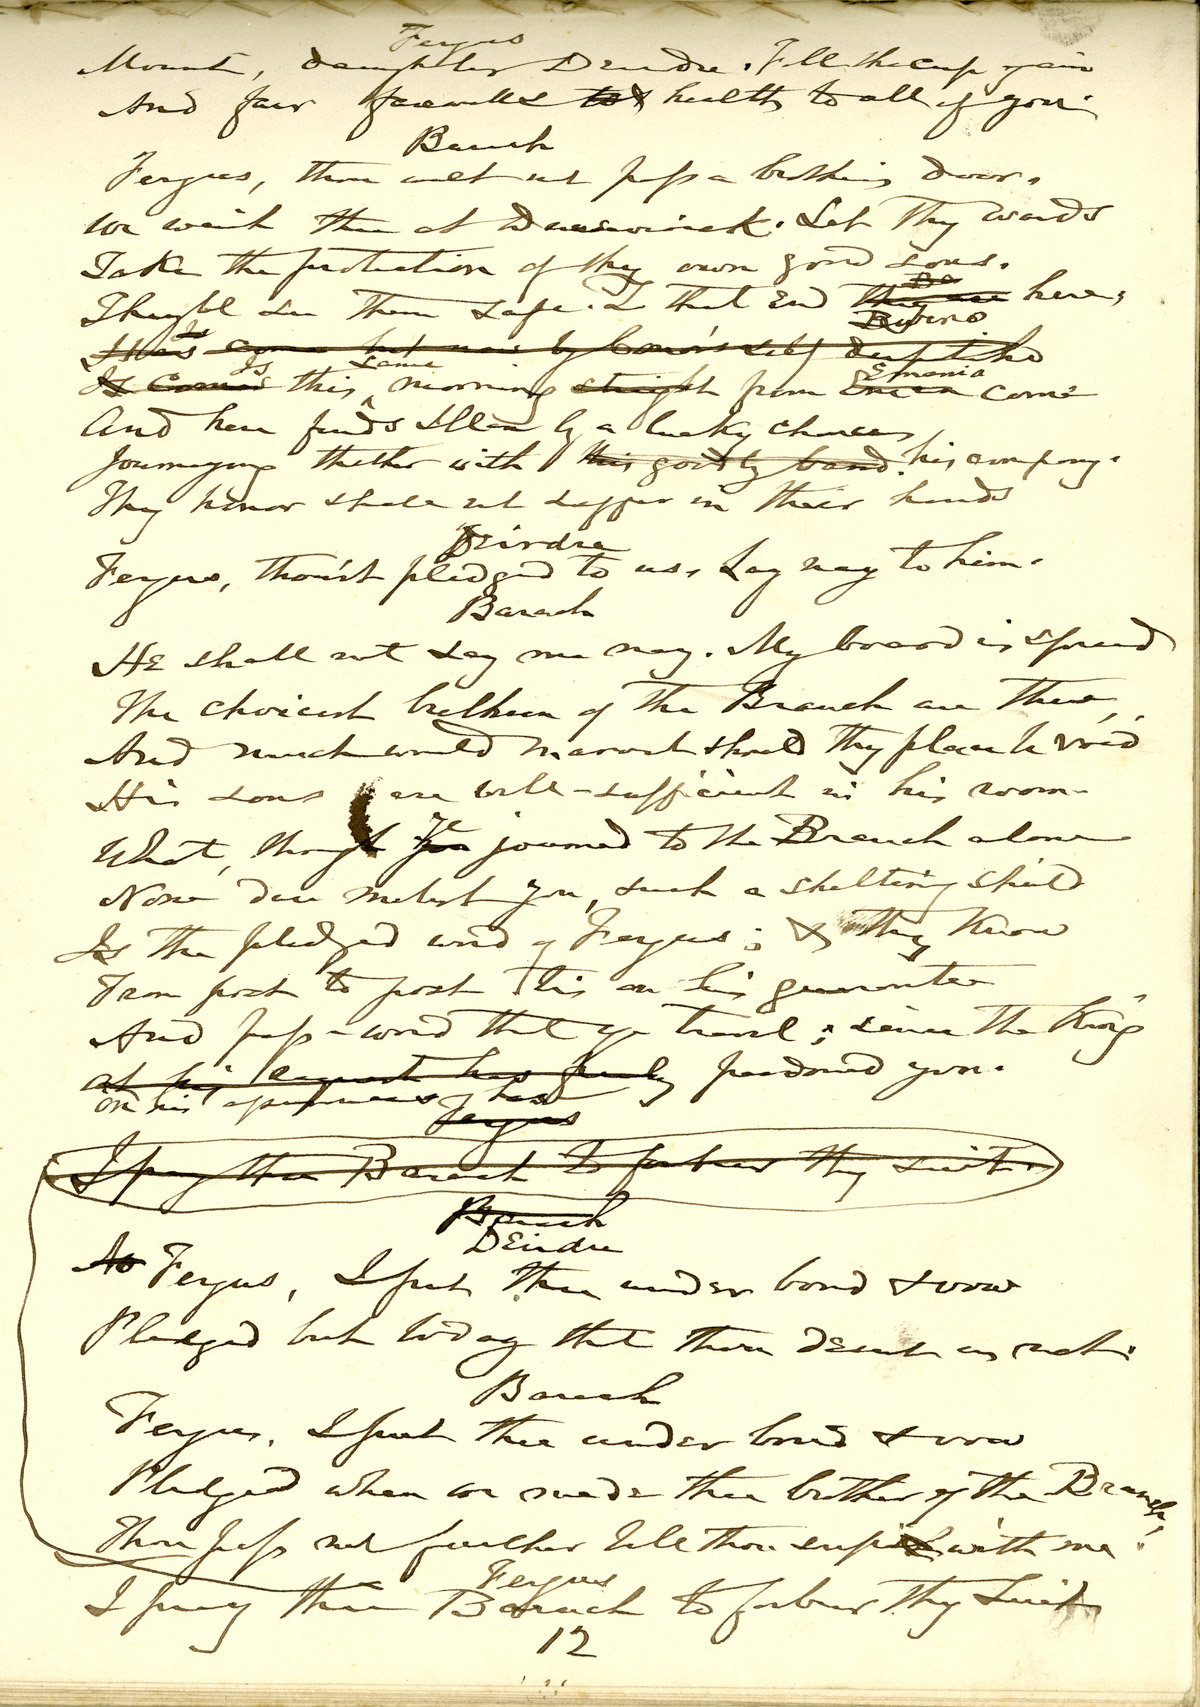 Fergus
Mount, daughter Deirdre. Fill the cup again
And fair farewells to & health to all of you.
Barach
Fergus, thou wilt not pass a brother's door.
We wait thee at Let thy wards
Take the protection of thy own good sons.
They'll see them safe. To that end they are Be here,
Buino
Illan's Is come but now by Conor's self despatched
Is Comes Is this same morning straight from Emania come
And here finds Illan by a lucky chance
Journeying thither with his goodly band. his company.
Thy honor shall not suffer in their hands
Deirdre
Fergus, thou'rt pledged to us. Say nay to him.
Barach
He shall not say me nay. My board is spread
The choicest brethren of the Branch are there,
And much would marvel should thy place be void
His sons are well-sufficient in his room.
What, though Ye journeyed to the Branch alone
None dare molest you, such a sheltering shield
Is the pledged word of Fergus; & they know
From post to post 'tis on his guarantee
And pass-word that ye travel; since the King
at his request has freely pardoned you.
on his has
Fergus
I pray thee Barach to forbear thy suit.
Barach
Deirdre
No Fergus, I put thee under bond & vow
Pledged but today that thou desert us not.
Barach
Fergus, I put thee under bond & vow
Pledged when we made thee brother of the Branch,
Thou pass not further till thou sup with me.
Fergus
I pray thee Barach to forbear thy suit
12